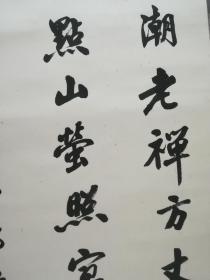 潮老禅方丈
點山螢照寂